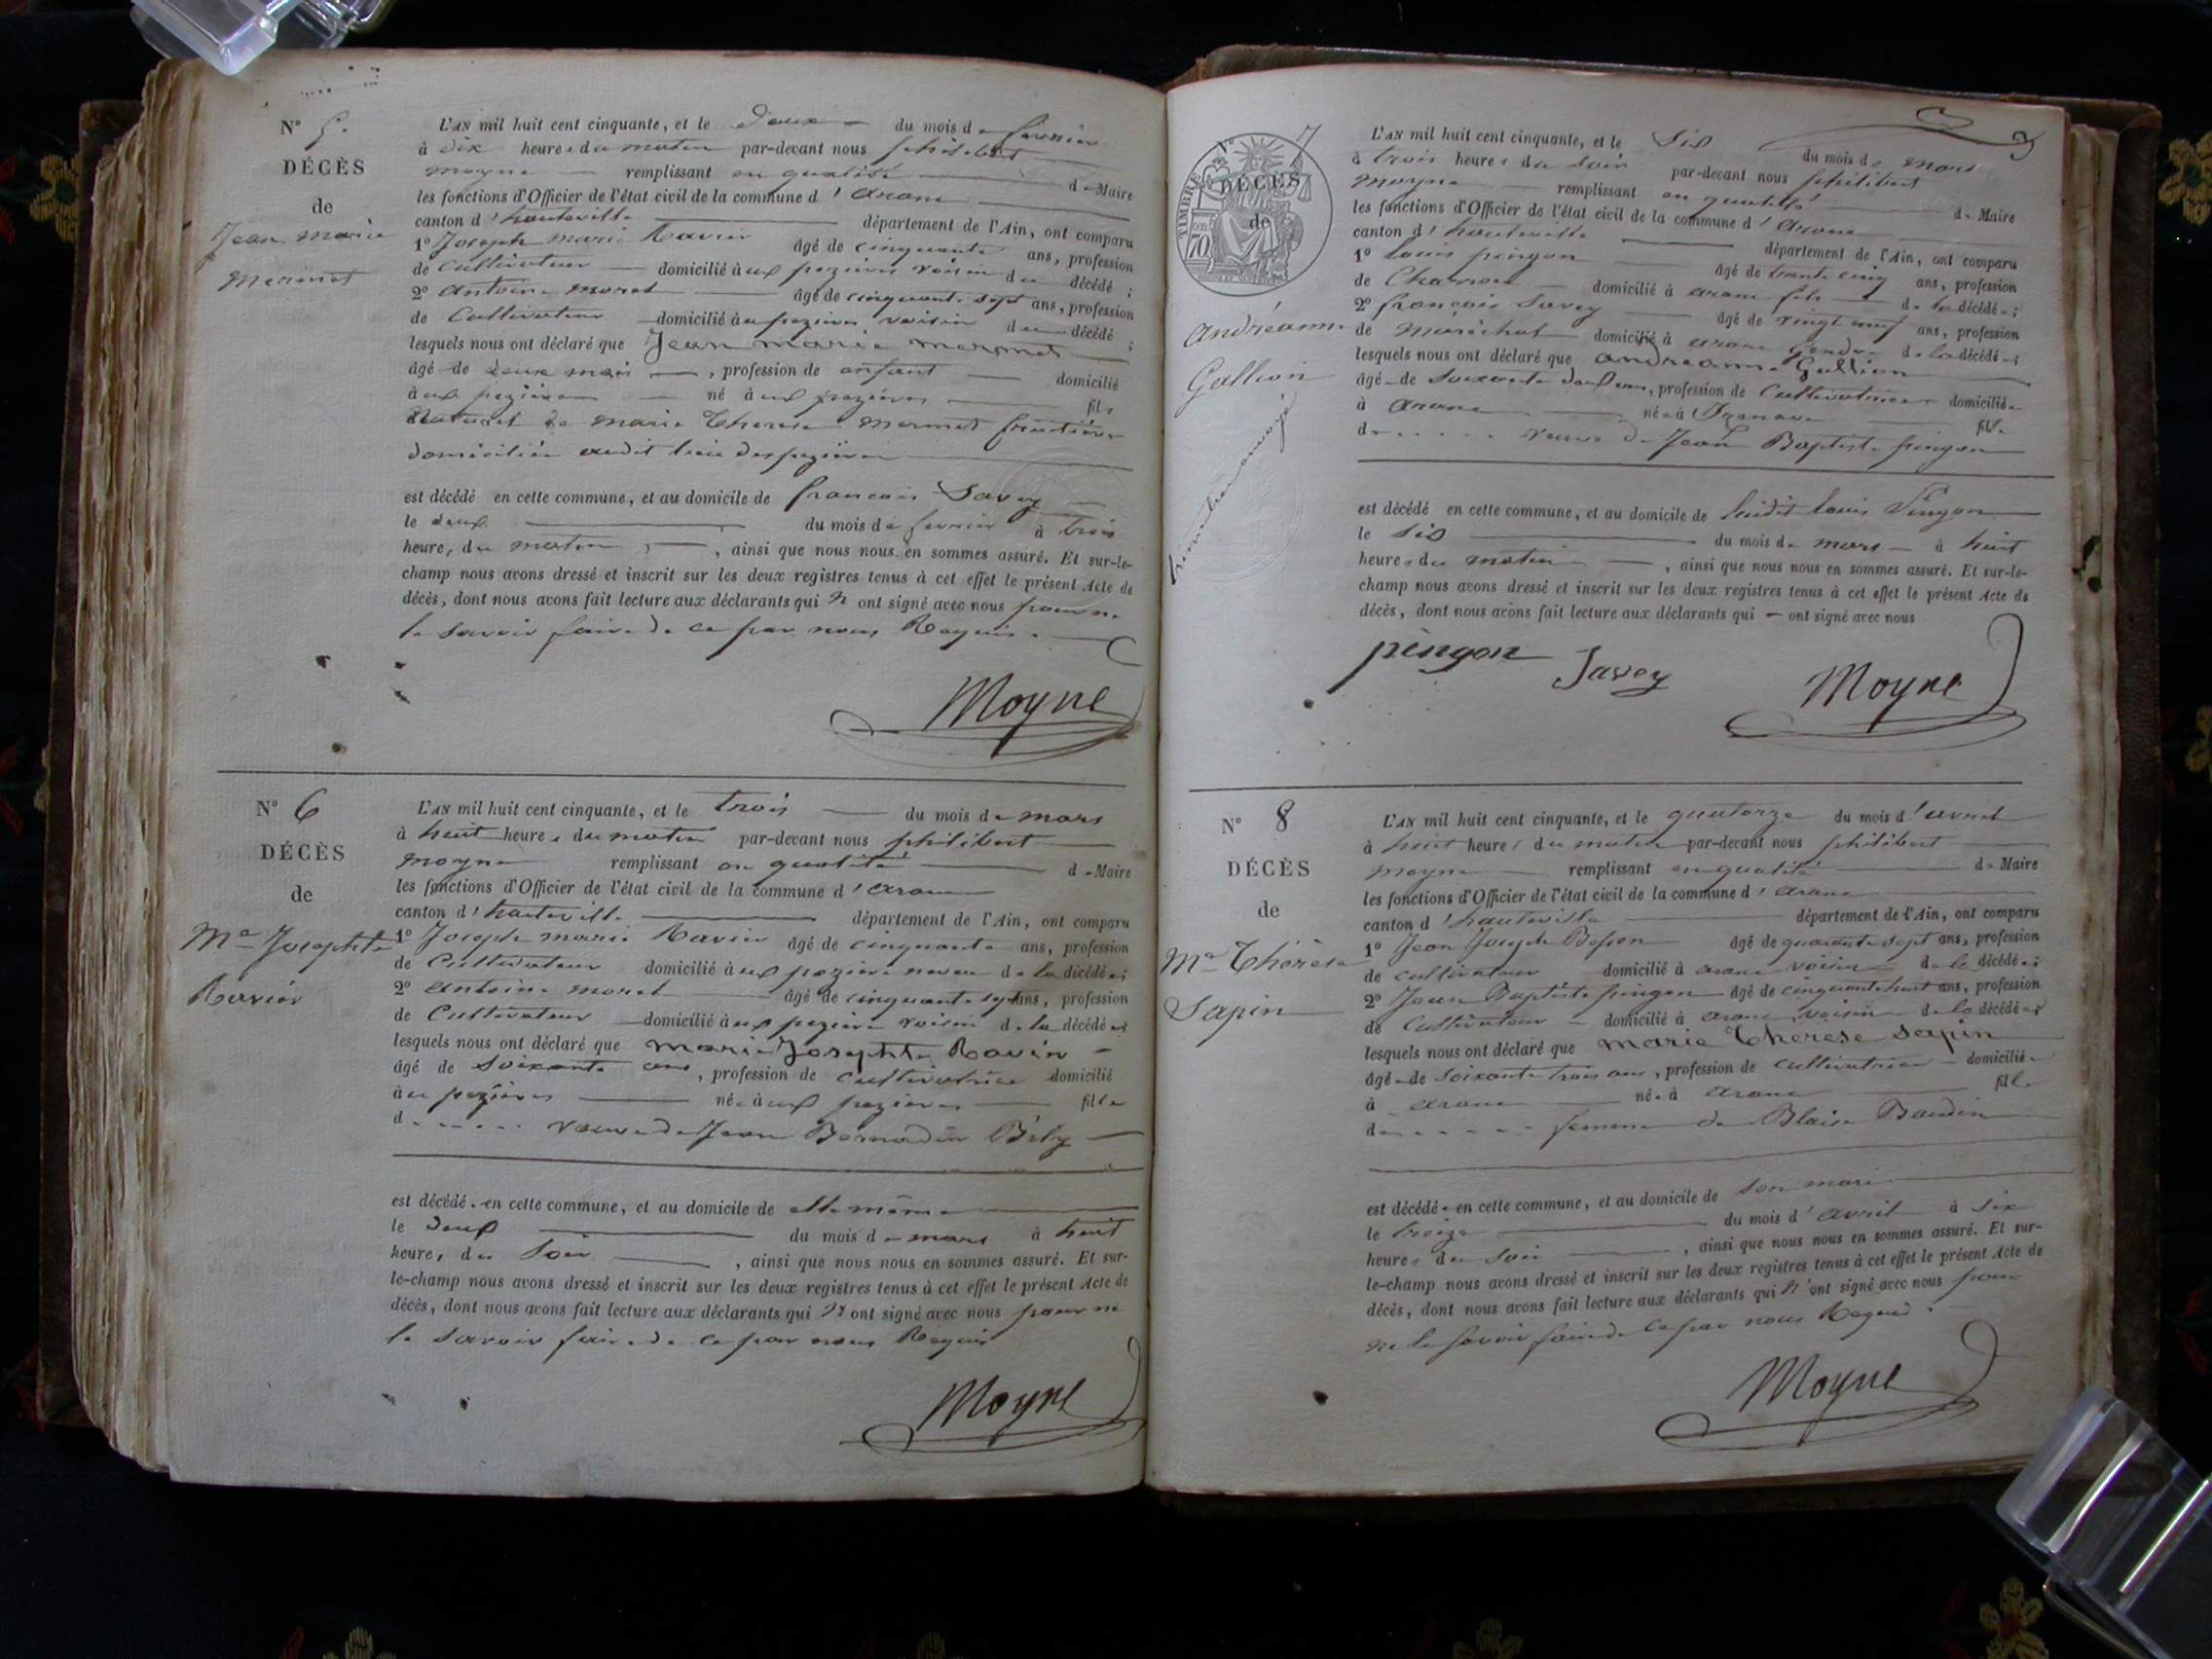 N° 5.
DÉCÈS
de
Jean marie
mermet
L'AN mil huit cent cinquante, et le deux du mois de fevrier
à dix heures du matin par-devant nous philibert
moyne remplissant en qualité de Maire
les fonctions d'Officier de l'état civil de la commune d'arane
canton d'hauteville département de l'Ain, ont comparu
1° Joseph marie Ravier âgé de cinquante ans, profession
de Cultivateur domicilié à aux pezieres voisin du décédé ;
2° antoine moret âgé de cinquante sept ans, profession
de Cultivateur domicilié à au pezieres voisin du décédé ;
lesquels nous ont déclaré que Jean marie mermet
âgé de deux mois, profession de enfant domicilié
à aux pezieres né à aux pezieres fils
naturel de marie Therese mermet
domiciliée audit lieu des pezieres
est décédé en cette commune, et au domicile de francois Savey
le deux du mois de fevrier à trois
heures du matin, ainsi que nous nous en sommes assuré. Et sur-le-
champ nous avons dressé et inscrit sur les deux registres tenus à cet effet le présent Acte de
décès, dont nous avons fait lecture aux déclarants qui n ont signé avec nous pour ne
le savoir faire de ce par nous Requis.
Moyne
N° 6
DÉCÈS
de
Me Josephte
Ravier
L'AN mil huit cent cinquante, et le trois du mois de mars
à huit heures du matin par-devant nous philibert
moyne remplissant en qualité de Maire
les fonctions d'Officier de l'état civil de la commune d'arane
canton d'hauteville département de l'Ain, ont comparu
1° Joseph marie Ravier âgé de cinquante ans, profession
de Cultivateur domicilié à aux peziere neveu de la décédée ;
2° antoine moret âgé de cinquante sept ans, profession
de Cultivateur domicilié à aux peziere voisin de la décédée ;
lesquels nous ont déclaré que marie Josephte Ravier
âgé de Soixante ans, profession de cultivatrice domicilié
à au pezieres née à aux pezieres fille
d..... veuve de Jean Bernardin Bély
est décédée en cette commune, et au domicile de elle même
le deux du mois de mars à huit
heures du Soir, ainsi que nous nous en sommes assuré. Et sur-
le-champ nous avons dressé et inscrit sur les deux registres tenus à cet effet le présent Acte de
décès, dont nous avons fait lecture aux déclarants qui n' ont signé avec nous pour ne
le savoir faire de ce par nous Requis
Moyne
N° 7
TIMBRE
70
DÉCÈS
de
andréanne
Gallion
L'AN mil huit cent cinquante, et le Six du mois de mars
à trois heures du Soir par-devant nous philibert
moyne remplissant en qualité de Maire
les fonctions d'Officier de l'état civil de la commune d'arane
canton d'hauteville département de l'Ain, ont comparu
1° louis pingon âgé de trente cinq ans, profession
de Charron domicilié à arane fils de la décédée ;
2° françois Savey âgé de vingt neuf ans, profession
de maréchal domicilié à arane Gendre de la décédée ;
lesquels nous ont déclaré que andréanne Gallion
âgée de Soixante ans, profession de Cultivatrice domiciliée
à arane née à fille
d..... veuve de Jean Baptiste pingon
est décédé en cette commune, et au domicile de ludit louis Pingon
le Six du mois de mars à huit
heures du matin, ainsi que nous nous en sommes assuré. Et sur-le-
champ nous avons dressé et inscrit sur les deux registres tenus à cet effet le présent Acte de
décès, dont nous avons fait lecture aux déclarants qui ont signé avec nous
pingon Savey Moyne
N° 8
DÉCÈS
de
Me Thérèse
Sapin
L'AN mil huit cent cinquante, et le quatorze du mois d'avril
à huit heures du matin par-devant nous philibert
moyne remplissant en qualité de Maire
les fonctions d'Officier de l'état civil de la commune d'arane
canton d'hauteville département de l'Ain, ont comparu
1° Jean Joseph Besson âgé de quarante sept ans, profession
de cultivateur domicilié à arane voisin de la décédée ;
2° Jean Baptiste pingon âgé de cinquante huit ans, profession
de Cultivateur domicilié à arane voisin de la décédée ;
lesquels nous ont déclaré que marie Therese sapin
âgée de soixante trois ans, profession de cultivatrice domiciliée
à arane née à arane fille
d..... femme de Blaise Baudin
est décédée en cette commune, et au domicile de son mari
le treize du mois d'avril à six
heures du soir, ainsi que nous nous en sommes assuré. Et sur-
le-champ nous avons dressé et inscrit sur les deux registres tenus à cet effet le présent Acte de
décès, dont nous avons fait lecture aux déclarants qui n'ont signé avec nous pour
ne le savoir faire de ce par nous Requis.
Moyne